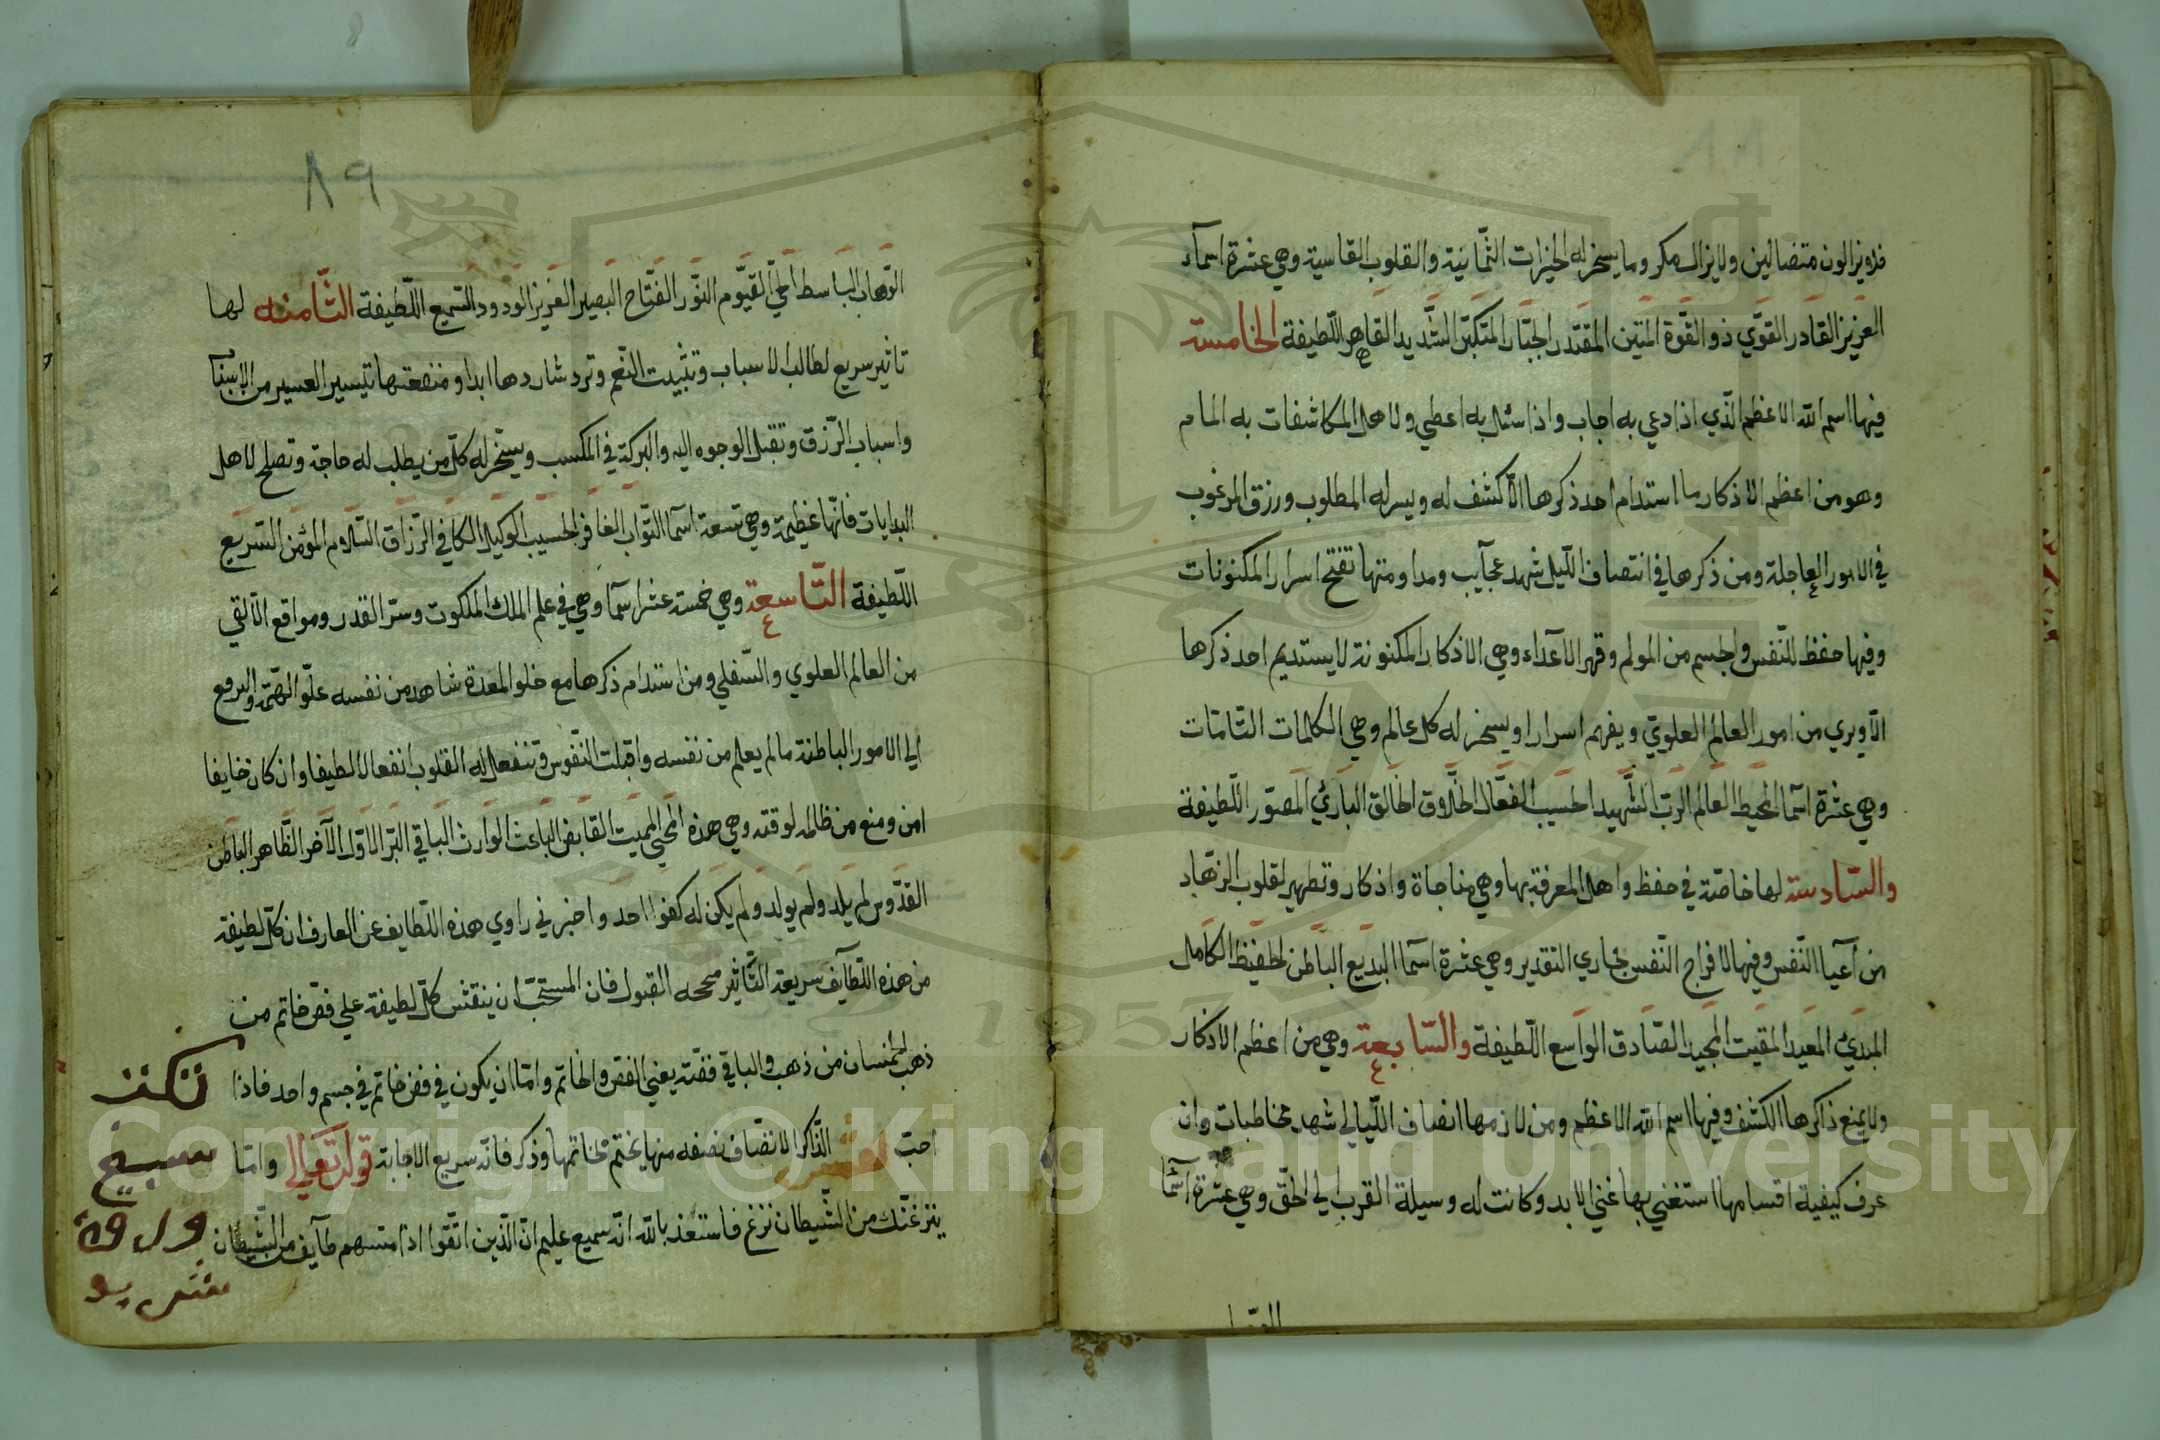 ٨٨
فلا يزالون متضالين ولا يزال مكر وما يسخر له الخيرات الثمانية والقلوب القاسية وهي عشرة اسماء
العزيز القادر القوّي ذو القوّة المتين المقتدر الجبّار المتكبّر الشّديد القاهر اللّطيفة الخامسة
فيها اسم الله الاعظم الّذي اذا دعي به اجاب واذا سئل به اعطي ولاهل المكاشفات به المام
وهو من اعظم الاذكار ما استدام احد ذكرها الّا كشف له ويسر له المطلوب ورزق المرغوب
في الامور العاجلة ومن ذكرها في انتصاف اللّيل شهد عجآيب ومداومتها تفتح اسرار المكنونات
وفيها حفظ للنّفس والجسم من المولم وقهر الاعداء وهي الاذكار المكنونة لا يستديم احد ذكرها
الّا ويري من امور العالم العلويّ ويفهم اسرارا ويسخر له كل عالم وهي الكلمات التّامّات
وهي عشرة اسما المحيط العالم الرّب الشّهيد الحسيب الفعّال الخلّاق الخالق البارئ المصوّر اللّطيفة
والسّادسة لها خاصّة في حفظ واهل المعرفة بها وهي مناجاة واذكار وتطهير لقلوب الزهّاد
من آعيا النّفس وفيها لافراج النّفس لمجاري التقدير وهي عشرة اسما البديع الباطن الحفيظ الكامل
المبدئ المعيد المقيت المجيد الصّادق الواسع اللّطيفة والسّابعة وهي من اعظم الاذكار
ولا يمنع ذاكرها الكشف وفيها اسم الله الاعظم ومن لازمها انصاف اللّيالي شهد مخاطبات وان
عرف كيفية اقسامها استغني بها غني الابد وكانت له وسيلة القرب الي الحقّ وهي عشرة آسما
٨٩
الوّهاب الباسط الحيّ القيّوم النّور الفتّاح البصير العزيز الودود السّميع اللّطيفة الثّامنه لها
تاثير سريع لطالب الاسباب وتثبيت النّعم وترد شاردها ابدا ومنفعتها تيسير العسير من الاشيآ
واسباب الرّزق وتقبل الوجوه اليه والبركة في المكسب ويسّخر له كلّ من يطلب له حاجة وتصلح لاهل
البدايات فانّها عظيمة وهي تسعة اسما التّواب الغافر الحسيب الوكيل الكافي الرّزاق السّلام المؤمن السّريع
اللّطيفة التّاسعة وهي خمسة عشر اسما وهي في علم الملك الملكوت وسرّ القدر ومواقع الآلقي
من العالم العلوي والسّفلي ومن استدام ذكرها مع خلو المعدة شاهد من نفسه علّو الهمّة والرفع
الي الامور الباطنة ما لم يعلم من نفسه واقبلت النّفوس وتنفعل له القلوب انفعالا لطيفا وان كان خايفا
امن ومنع من ظالمه لوقته وهي هذه المحيي المميت القابض الباعث الوارث الباقي البرّ الاوّل الآخر الظّاهر الباطن
القدّوس لم يلد ولم يولد ولم يكن له كفوا احد واخبرني راوي هذه اللّطايف عن العارف ان كلّ لطيفة
من هذه اللّطآيف سريعة التّأثير صحيحه القبول فان المستحبّ ان ينقش كلّ لطيفة علي فصّ خاتم من
ذهب من ذهب والباقي فضّة يعني الفصّ والخاتم وامّا ان يكون في فصّ خاتم في جسم واحد فاذا
احبّ الذّاكر الانصّاف نصفه منها يختم بخاتمها وذكر فانّه سريع الاجابة قوله تعالي وامّا
ينزغنّك من الشّيطان نزغ فاستعذ بالله انّه سميع عليم انّ الّذين اتّقوا اذا مسّهم طآيف من الشّيطان
Copyright © King Saud University
1957